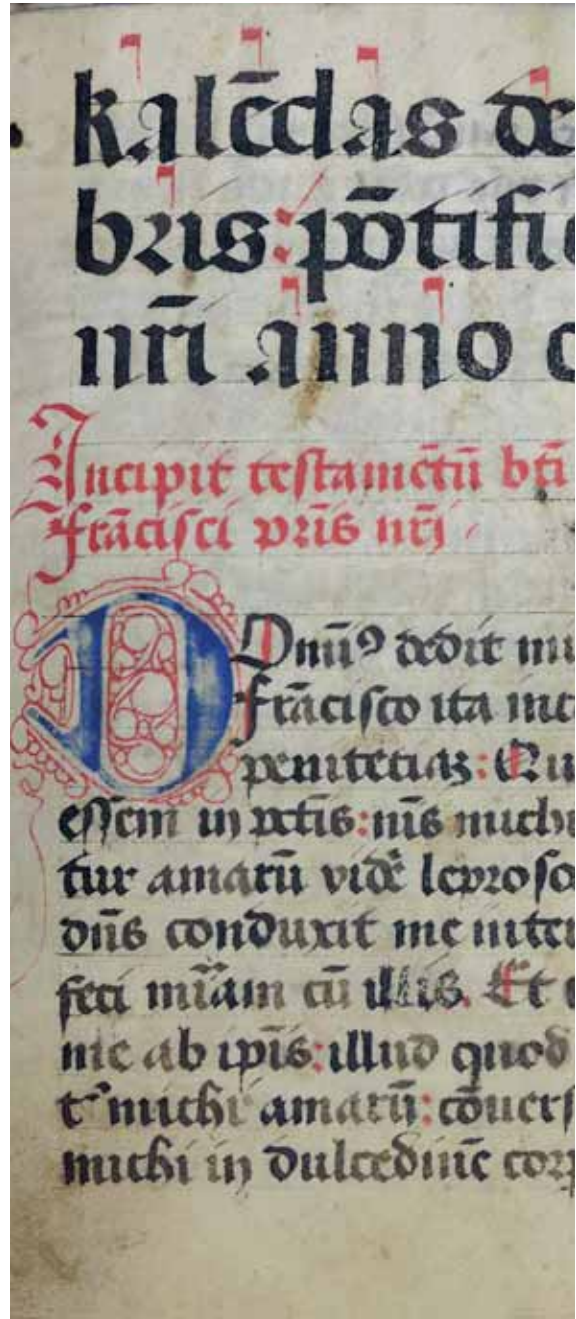 kalēdas de
bris: pōtifi
nr̄i anno
Incipit testamētū bt̄i
frācisci pr̄is nr̄j
Dnūꝰ dedit mi
frācisco ita
penitētiaʒ: Qu
essem in pctīs: nīs michi
tur amarū vidē leproso
dn̄s conduxit me inter
feci mīam cū illis. Et
me ab ip̄is: illud quod
michi amarū: cōuers
michi in dulcedinē corp